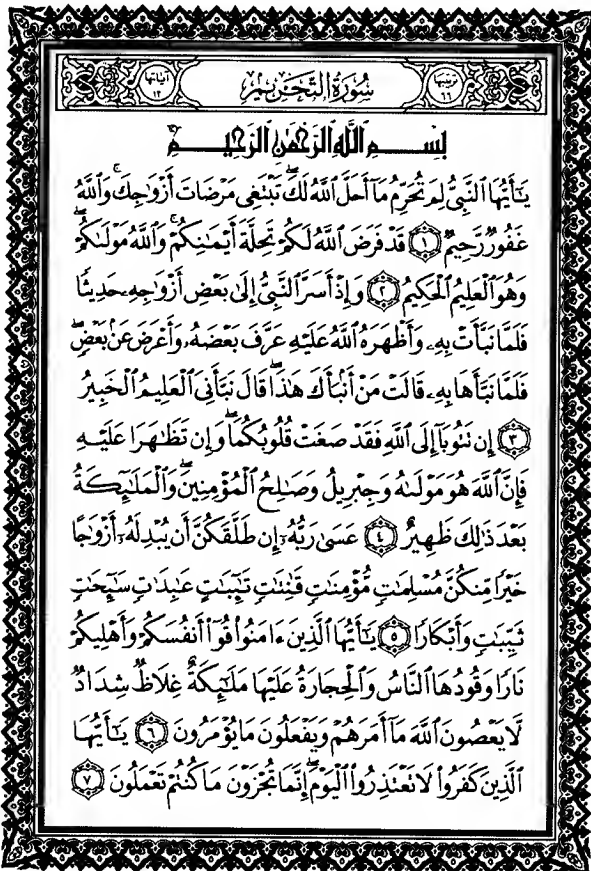 آياتها ١٢
سُورَةُ التَّحْرِيمِ
ترتيبها ٦٦
بِسْمِ اللَّهِ الرَّحْمَٰنِ الرَّحِيمِ
يَٰٓأَيُّهَا ٱلنَّبِيُّ لِمَ تُحَرِّمُ مَآ أَحَلَّ ٱللَّهُ لَكَۖ تَبْتَغِى مَرْضَاتَ أَزْوَٰجِكَۚ وَٱللَّهُ
غَفُورٌ رَّحِيمٌ ١ قَدْ فَرَضَ ٱللَّهُ لَكُمْ تَحِلَّةَ أَيْمَٰنِكُمْۚ وَٱللَّهُ مَوْلَىٰكُمْۖ
وَهُوَ ٱلْعَلِيمُ ٱلْحَكِيمُ ٢ وَإِذْ أَسَرَّ ٱلنَّبِيُّ إِلَىٰ بَعْضِ أَزْوَٰجِهِۦ حَدِيثًا
فَلَمَّا نَبَّأَتْ بِهِۦ وَأَظْهَرَهُ ٱللَّهُ عَلَيْهِ عَرَّفَ بَعْضَهُۥ وَأَعْرَضَ عَنۢ بَعْضٍۖ
فَلَمَّا نَبَّأَهَا بِهِۦ قَالَتْ مَنْ أَنۢبَأَكَ هَٰذَاۖ قَالَ نَبَّأَنِىَ ٱلْعَلِيمُ ٱلْخَبِيرُ
٣ إِن تَتُوبَآ إِلَى ٱللَّهِ فَقَدْ صَغَتْ قُلُوبُكُمَاۖ وَإِن تَظَٰهَرَا عَلَيْهِ
فَإِنَّ ٱللَّهَ هُوَ مَوْلَىٰهُ وَجِبْرِيلُ وَصَٰلِحُ ٱلْمُؤْمِنِينَۖ وَٱلْمَلَٰٓئِكَةُ
بَعْدَ ذَٰلِكَ ظَهِيرٌ ٤ عَسَىٰ رَبُّهُۥٓ إِن طَلَّقَكُنَّ أَن يُبْدِلَهُۥٓ أَزْوَٰجًا
خَيْرًا مِّنكُنَّ مُسْلِمَٰتٍ مُّؤْمِنَٰتٍ قَٰنِتَٰتٍ تَٰٓئِبَٰتٍ عَٰبِدَٰتٍ سَٰٓئِحَٰتٍ
ثَيِّبَٰتٍ وَأَبْكَارًا ٥ يَٰٓأَيُّهَا ٱلَّذِينَ ءَامَنُوا۟ قُوٓا۟ أَنفُسَكُمْ وَأَهْلِيكُمْ
نَارًا وَقُودُهَا ٱلنَّاسُ وَٱلْحِجَارَةُ عَلَيْهَا مَلَٰٓئِكَةٌ غِلَاظٌ شِدَادٌ
لَّا يَعْصُونَ ٱللَّهَ مَآ أَمَرَهُمْ وَيَفْعَلُونَ مَا يُؤْمَرُونَ ٦ يَٰٓأَيُّهَا
ٱلَّذِينَ كَفَرُوا۟ لَا تَعْتَذِرُوا۟ ٱلْيَوْمَۖ إِنَّمَا تُجْزَوْنَ مَا كُنتُمْ تَعْمَلُونَ ٧